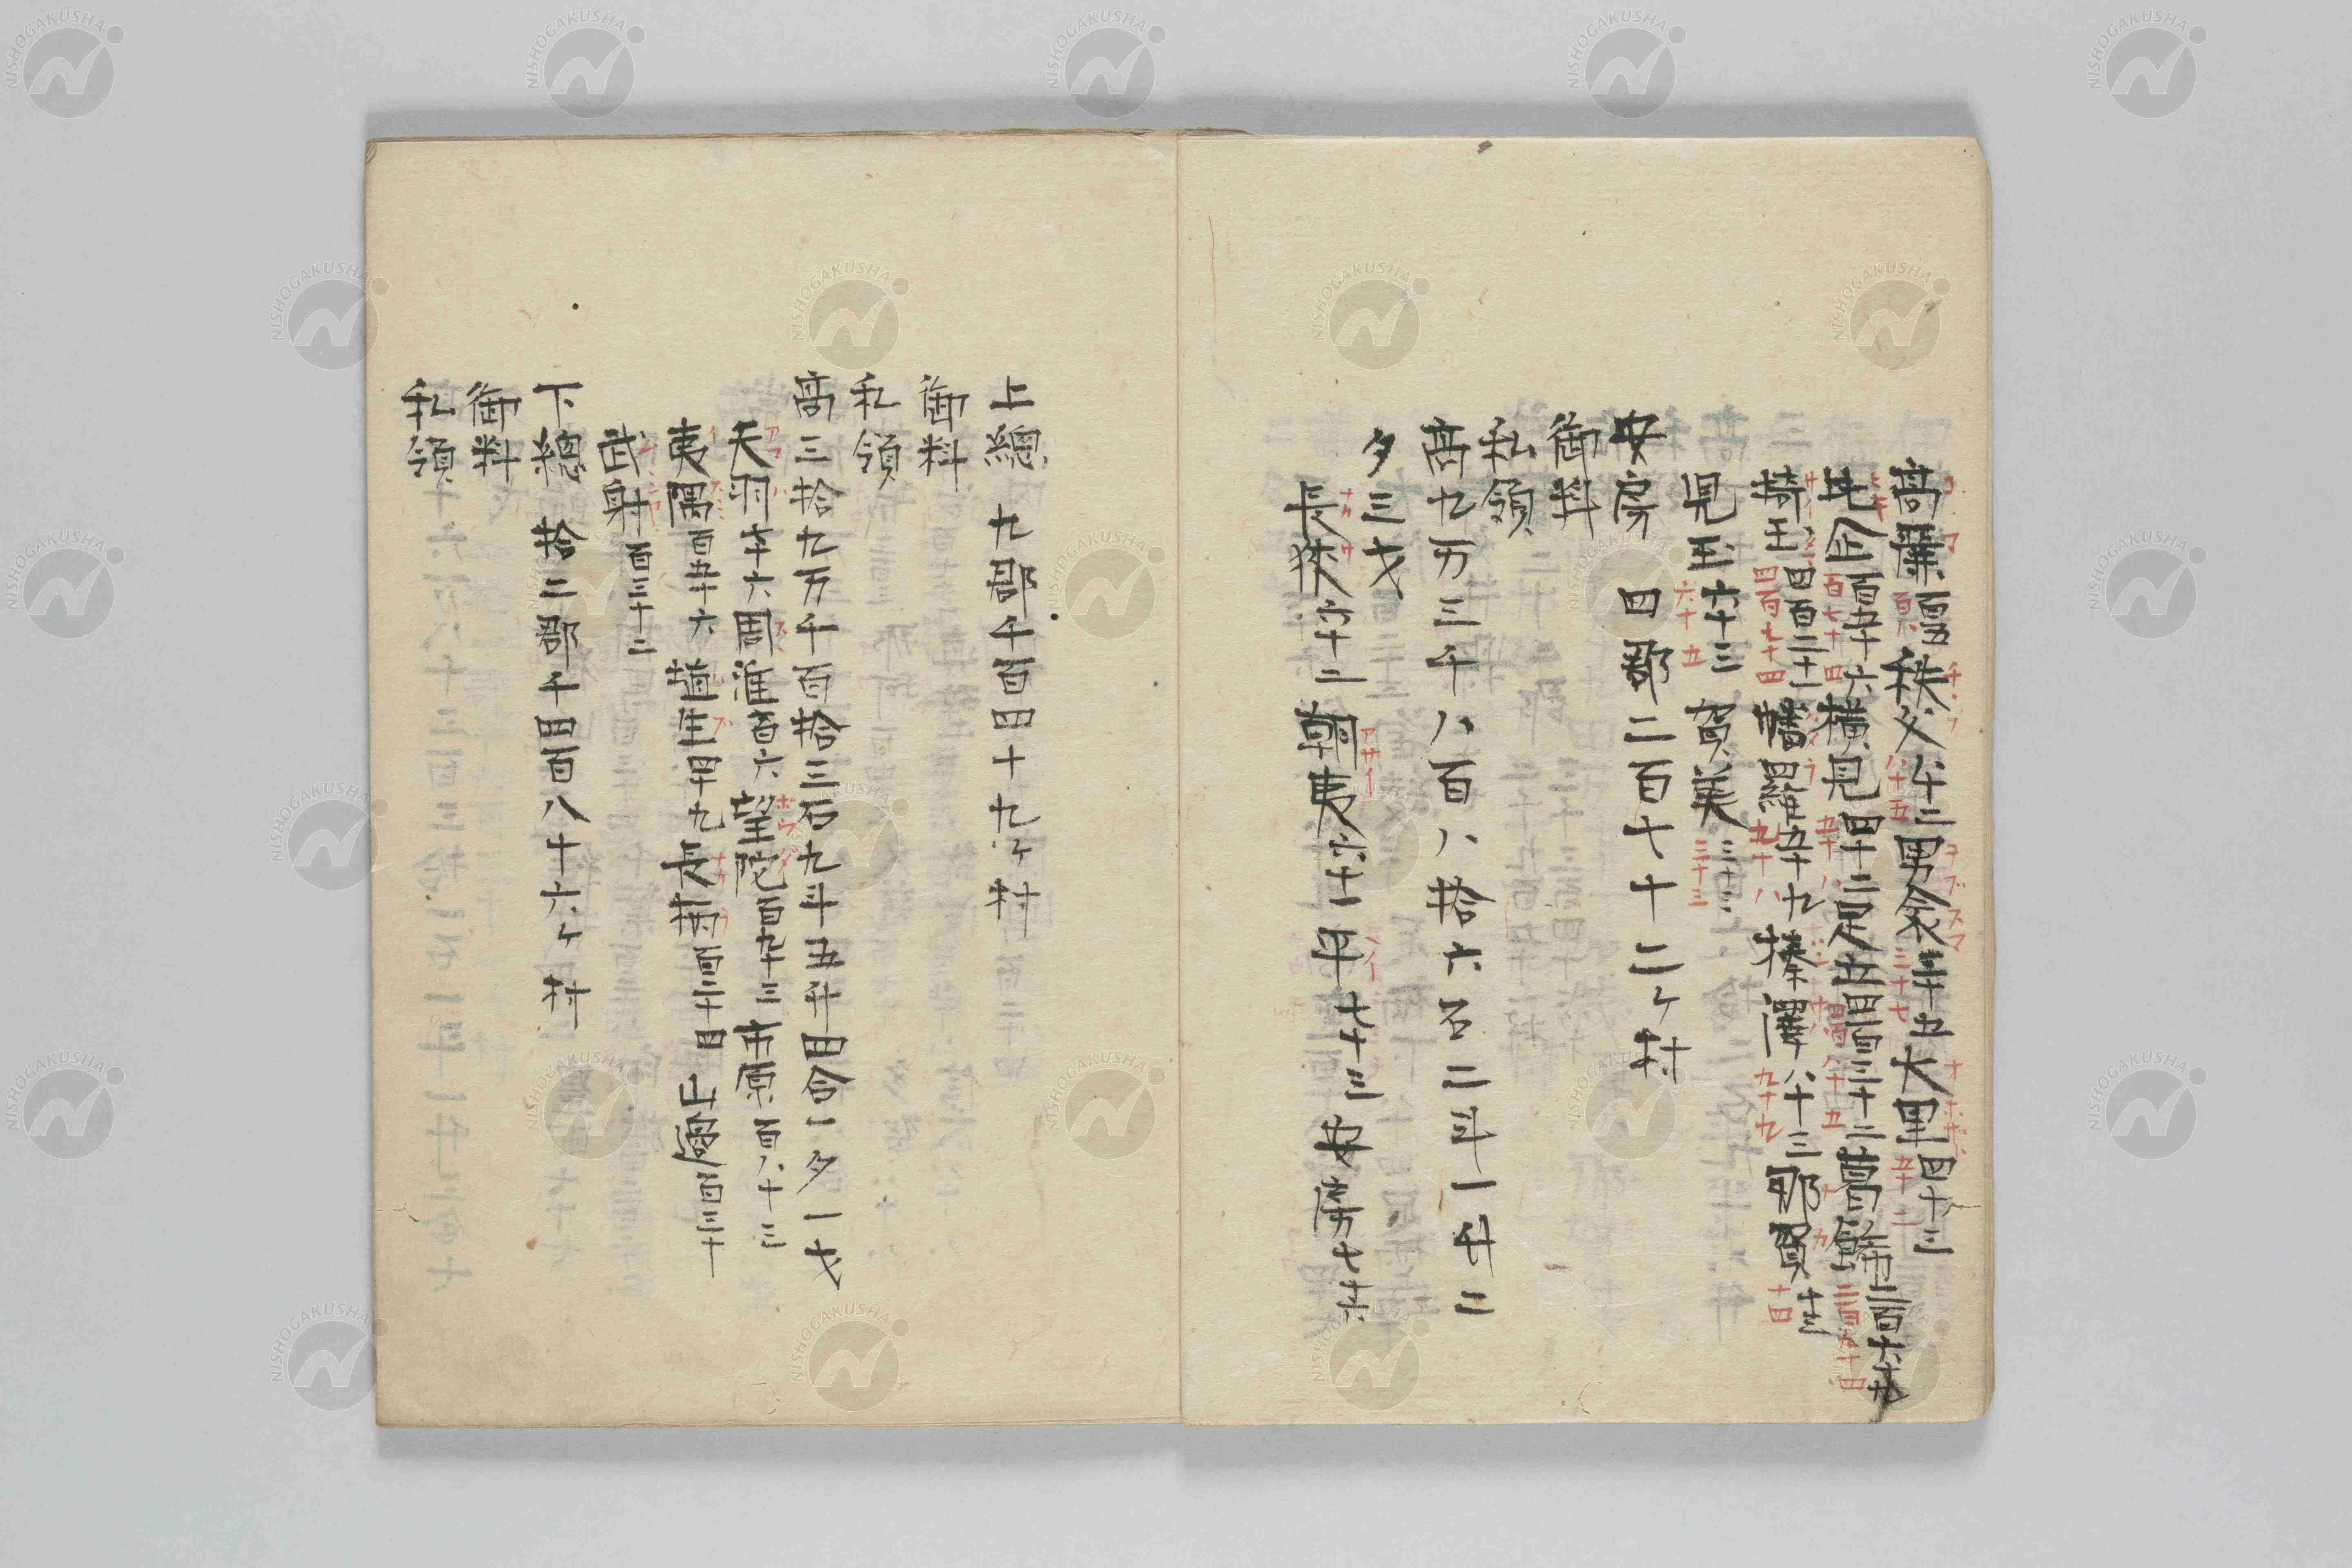 高麗百五秩父八十二男衾三十五大里四十三
比企百五十六横見四十二足立四百三十二葛餝三百六十九
埼玉四百二十一幡羅五十九榛澤八十三那賀十三
児玉六十三賀美三十三
安房 四郡二百七十二ヶ村
御料
私領
高九万三千八百八拾六石二斗一升二
夕三才
長狭六十二朝夷六十一平七十三安房七十六
上總 九郡千百四十九ヶ村
御料
私領
高三拾九万千百拾三石九斗五升四合一夕一才
天羽七十六周淮百六望陀百九十三市原百八十三
夷隅百五十六埴生四十九長柄百二十四山邊百三十
武射百三十二
下總 拾二郡千四百八十六ヶ村
御料
私領